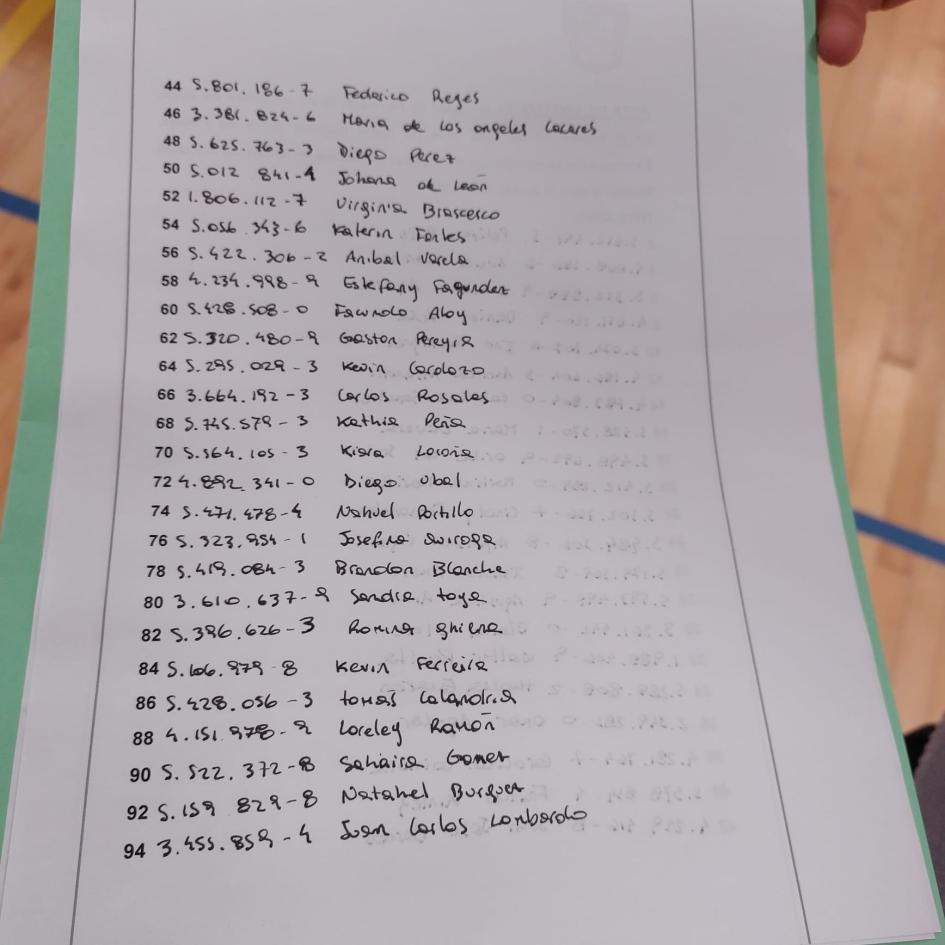 44 5.801.186-7 Federico Reyes
46 3.381.824-6 Maria de los angeles Cacares
48 5.625.763-3 Diego Perez
50 5.012 841-4 Johana de León
52 1.806.112-7 Virginia Brascesco
54 5.056.343-6 Katerin Fontes
56 5.422.306-2 Anibal Varela
58 4.234.998-9 Estefany Fagundez
60 5.428.508-0 Facundo Aloy
62 5.320.480-9 Gaston Pereyra
64 5.295.029-3 Kevin Cardozo
66 3.664.192-3 Carlos Rosales
68 5.745.579-3 Kathia Peña
70 5.564.105-3 Kiara
72 4.892.341-0 Diego Ubal
74 5.471.478-4 Nahuel Portillo
76 5.323.954-1 Josefina Quiroga
78 5.419.084-3 Brandon Blanche
80 3.610.637-9 Sandra toya
82 5.396.626-3 Romina
84 5.106.979-8 Kevin Ferreira
86 5.428.056-3 tomás Calandria
88 4.151.978-9 Loreley Ramón
90 5.522.372-8 Sahaira Gomez
92 5.159 829-8 Natahel
94 3.455.859-4 Juan Carlos Lombardo